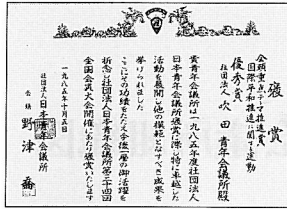 褒賞
金賞重点テーマ推進賞
国際平和推進に関する運動
優秀賞
社団法人 吹田青年会議所殿
貴青年会議所は一九八五年度社団法人
日本青年会議所褒賞に際し特に卓越した
活動を展開し他の模範となすべき成果を
挙げられました
ここにその功績をたたえ今後一層の御活躍を
祈念し社団法人日本青年会議所第三十四回
全国会員大会開催にあたり褒賞いたします
一九八五年十月五日
社団法人 日本青年会議所
会頭 野津 喬